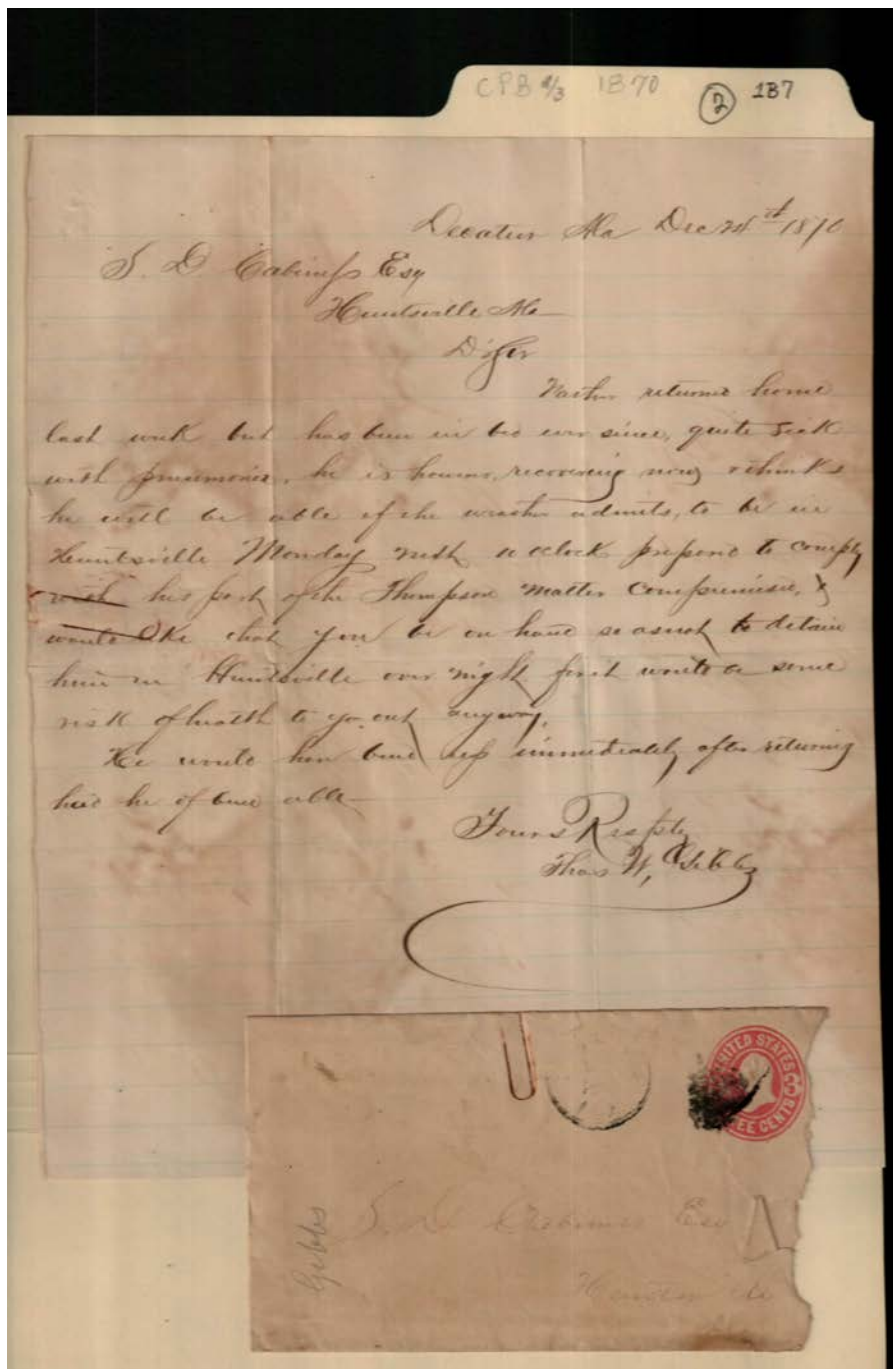 CPB 2/3 1870 (2) 1B7
Decatur Ala Dec 24th 1870
S. D. Cabiness Esq
Huntsville Ala
D'Sir
returned home
last week but has been in bed ever since, quite sick
with pneumonia, he is however, recovering now, & thinks
he will be able if the weather admits, to be in
Huntsville Monday next, oclock prepared to comply
with his part of the Thompson matter compromise, &
would like that you be on hand so as not to detain
him in Huntsville over night, for it would be some
risk of health to go out anyway.
He would have been up immediately after returning
had he of been able
Yours Respty
Thos W, Gibbs
UNITED STATES
3
THREE CENTS
Gibbs
S. D. Cabiness Esq
Huntsville